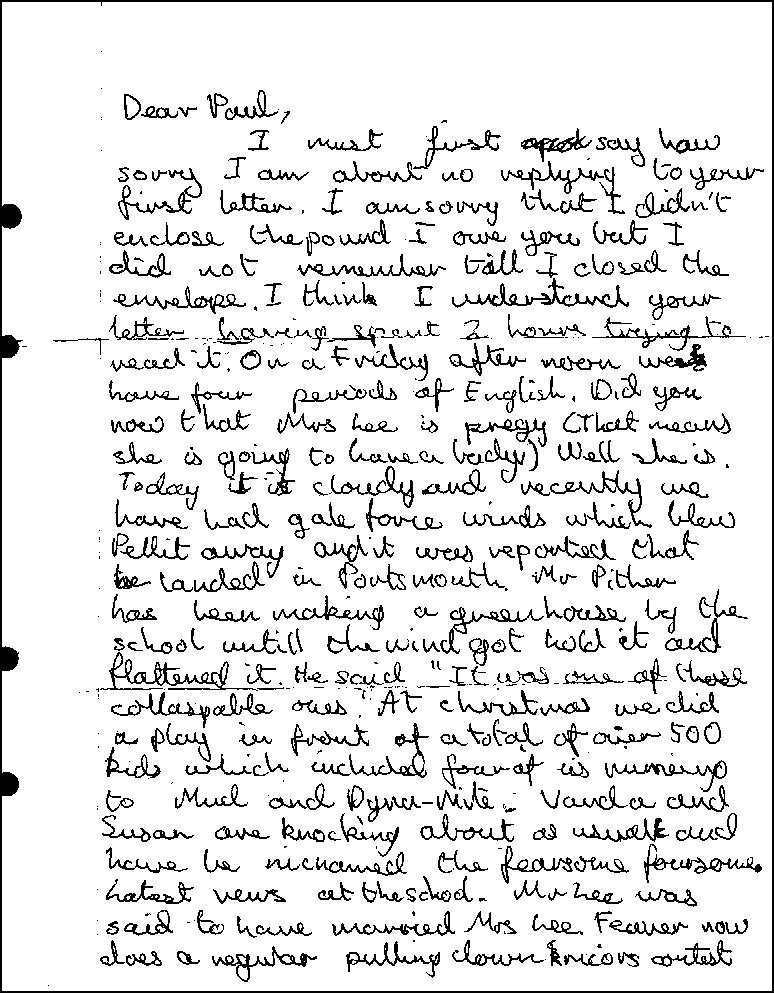 Dear Paul,
I must first say how
sorry I am about no replying to your
first letter. I am sorry that I didn't
enclose the pound I owe you but I
did not remember till I closed the
envelope. I think I understand your
letter having spent 2 hours trying to
read it. On a Friday after noon we
have four periods of English. Did you
now that Mrs Lee is pregy (That means
she is going to have a baby!) Well she is.
Today it is cloudy and recently we
have had gale force winds which blew
Pellit away and it was reported that
he landed in Portsmouth. Mr Pither
has been making a greenhouse by the
school untill the wind got hold it and
flattened it. He said "It was one of those
collaspable ones." At christmas we did
a play in front of a total of over 500
kids which included four of us
to Mud and Dyna-Nite. Vanda and
Susan are knocking about as usuall and
have be nicnamed the fearsome foursome.
Latest news at the school. Mr Lee was
said to have married Mrs Lee. Feaver now
does a regular pulling down contest